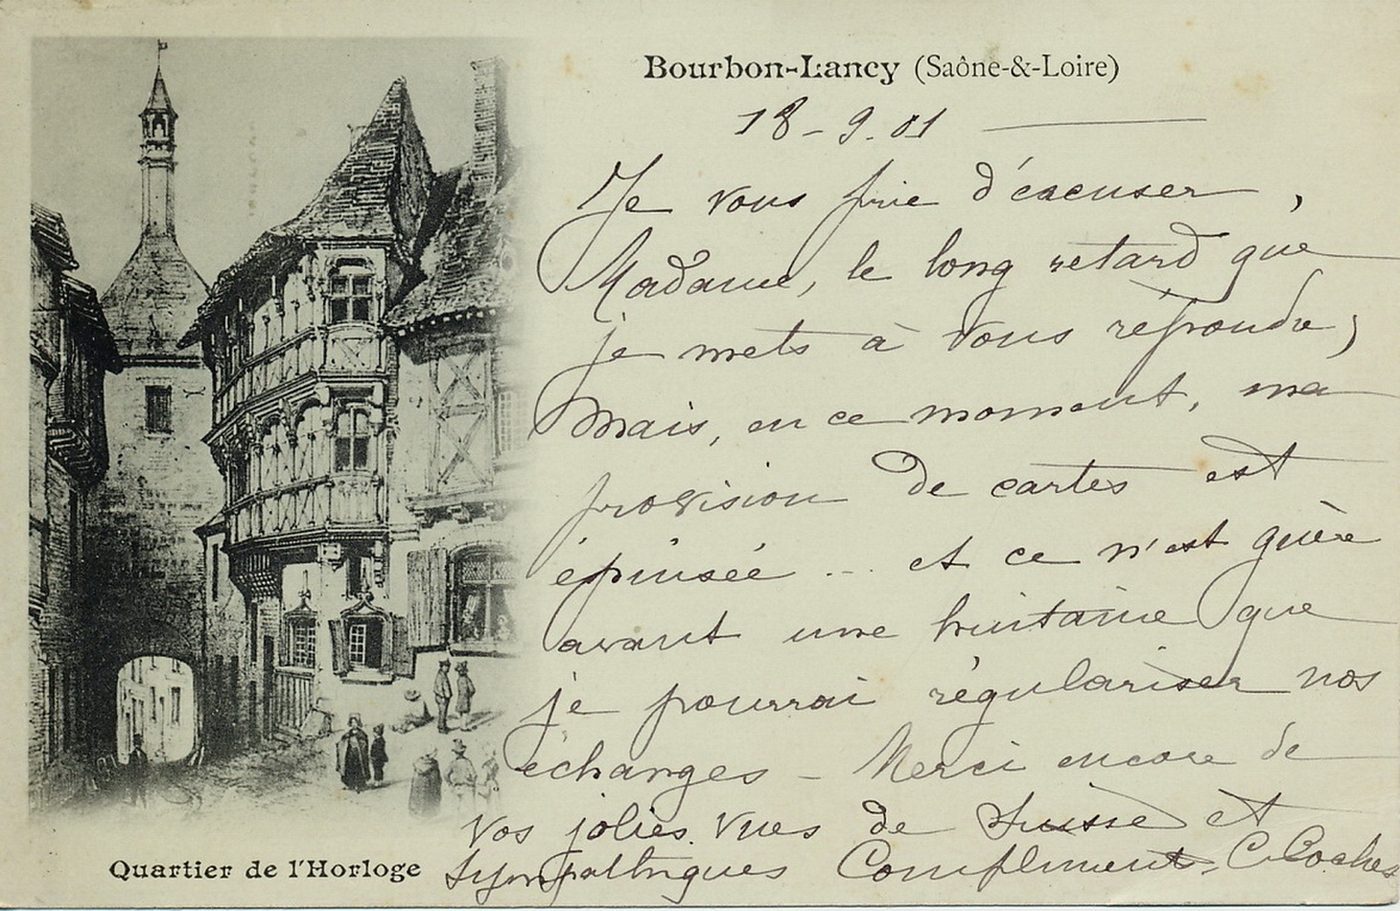 Bourbon-Lancy (Saône-&-Loire)
18-9.01
Je vous prie d'excuser,
Madame, le long retard que
je mets à vous répondre,
mais, en ce moment, ma
provision de cartes est
épuisée... et ce n'est guère
avant une huitaine que
je pourrai régulariser nos
échanges - Merci encore de
vos jolies vues de Suisse et
sympathiques Compliments. C. Coches
Quartier de l'Horloge